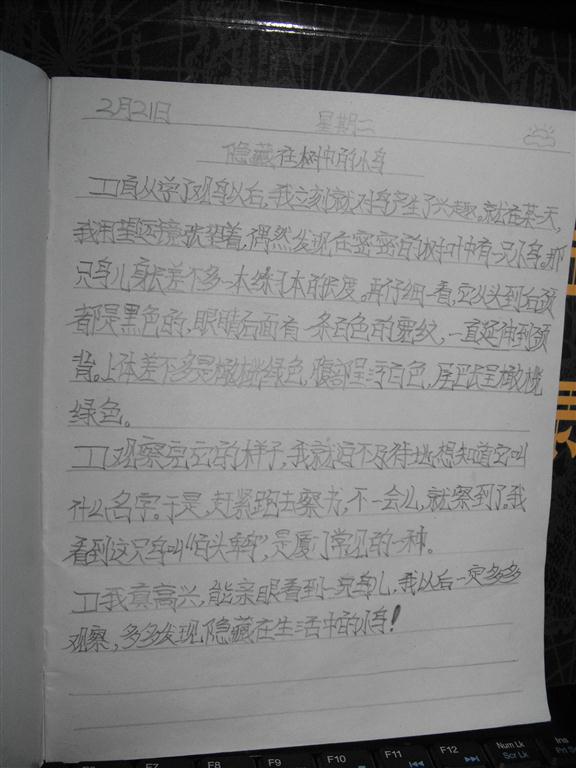 2月21日 星期二
隐藏在树中的小鸟
自从学了观鸟以后，我立刻就对鸟产生了兴趣。就在某一天，
我用望远镜张望着，偶然发现在密密的树叶中有一只小鸟。那
只鸟儿身长差不多一本练习本的长度。再仔细一看，它从头到后颈
都是黑色的，眼睛后面有一条白色的宽纹，一直延伸到颈
背。上体差不多是橄榄绿色，腹部呈污白色，尾巴长呈橄榄
绿色。
观察完它的样子，我就迫不及待地想知道它叫
什么名字。于是，赶紧跑去察书，不一会儿，就察到了。我
看到这只鸟叫“白头鹎”，是厦门常见的一种。
我真高兴，能亲眼看到一只鸟儿，我以后一定多多
观察，多多发现隐藏在生活中的小鸟！
F7
F8
F9
F10
F11
F12
Num Lk
Scr Lk
Ins